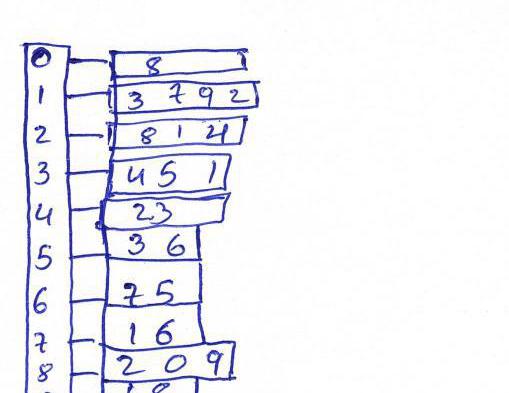 0 8
1 3 7 9 2
2 8 1 4
3 4 5 1
4 2 3
5 3 6
6 7 5
7 1 6
8 2 0 9